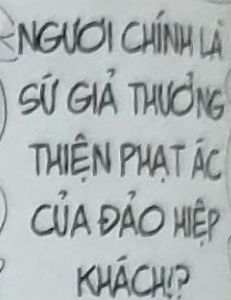 NGƯƠI CHÍNH LÀ
SỨ GIẢ THƯỞNG
THIỆN PHẠT ÁC
CỦA ĐẢO HIỆP
KHÁCH!?